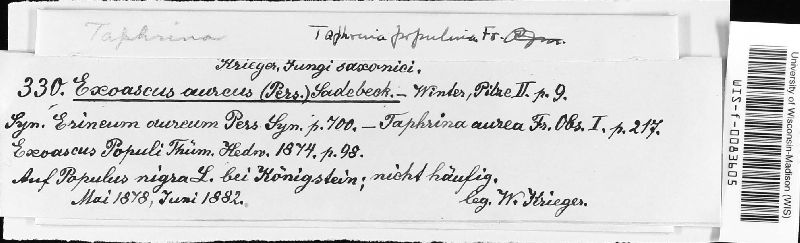 Taphrina Taphrina populina Fr.
Krieger, Fungi saxonici.
330. Exoascus aureus (Pers.) Sadebeck. – Winter, Pilze II. p. 9.
Syn. Erineum aureum Pers. Syn. p. 700. – Taphrina aurea Fr. Obs. I. p. 217.
Exoascus Populi Thüm. Hedw. 1874. p. 98.
Auf Populus nigra L. bei Königstein; nicht häufig.
Mai 1878, Juni 1882. leg. W. Krieger.
University of Wisconsin-Madison (WIS)
WIS-f-0083605